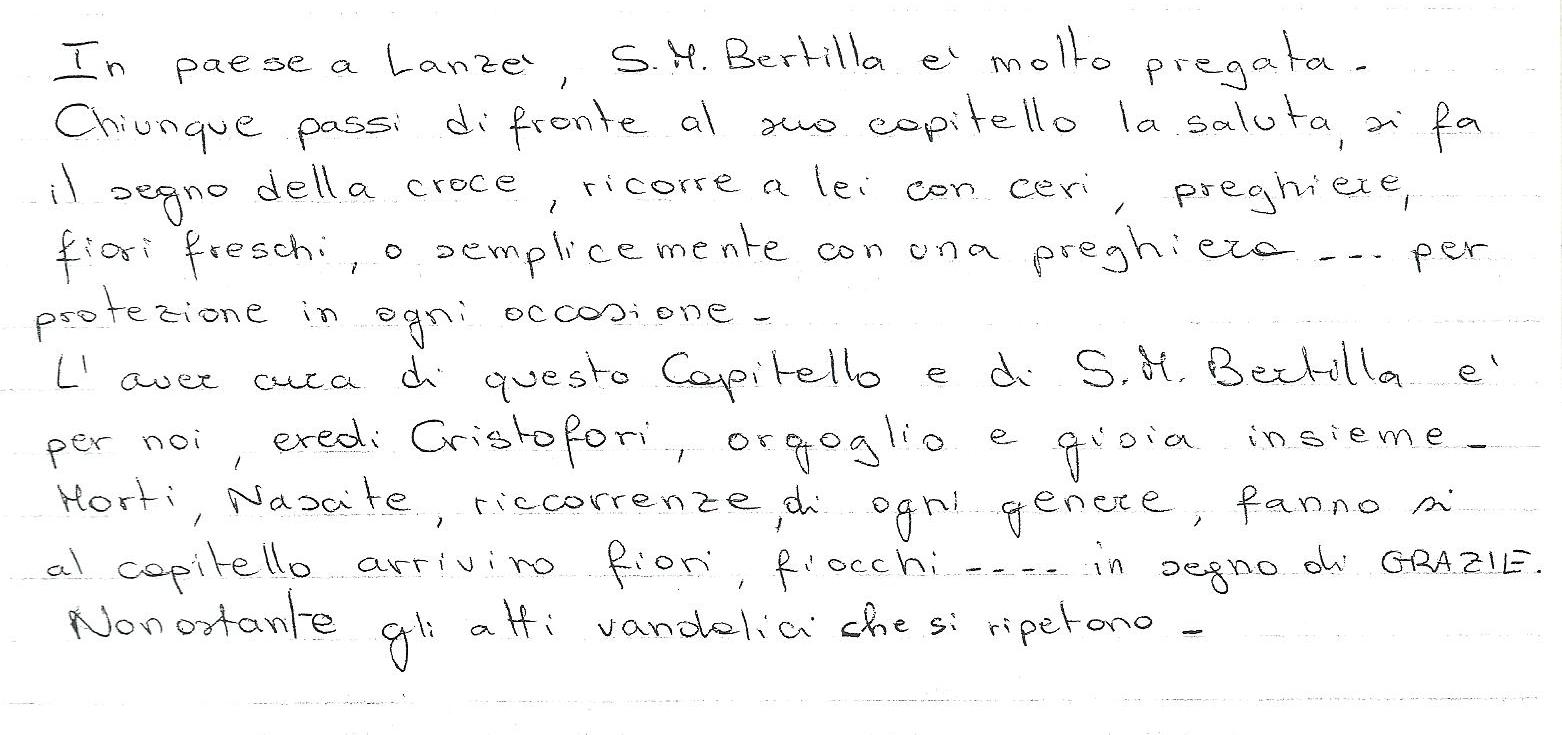 In paese a Lanzè, S.M. Bertilla e' molto pregata.
Chiunque passi di fronte al suo capitello la saluta, si fa
il segno della croce, ricorre a lei con ceri, preghiere,
fiori freschi, o semplicemente con una preghiera --- per
protezione in ogni occasione -
L' aver cura di questo Capitello e di S.M. Bertilla e'
per noi, eredi Cristofori, orgoglio e gioia insieme -
Morti, Nascite, riccorrenze, di ogni genere, fanno si
al capitello arrivino fiori, fiocchi ---- in segno di GRAZIE.
Nonostante gli atti vandalici che si ripetono -